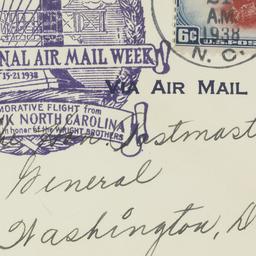 NAL AIR MAIL WEEK
15-21 1938
MORATIVE FLIGHT from
WK NORTH CAROLINA
in honor of the WRIGHT BROTHERS
21
A.M.
1938
N. C.
6¢ U.S. POS
VIA AIR MAIL
The Hon. Postmast
General
Washington, D